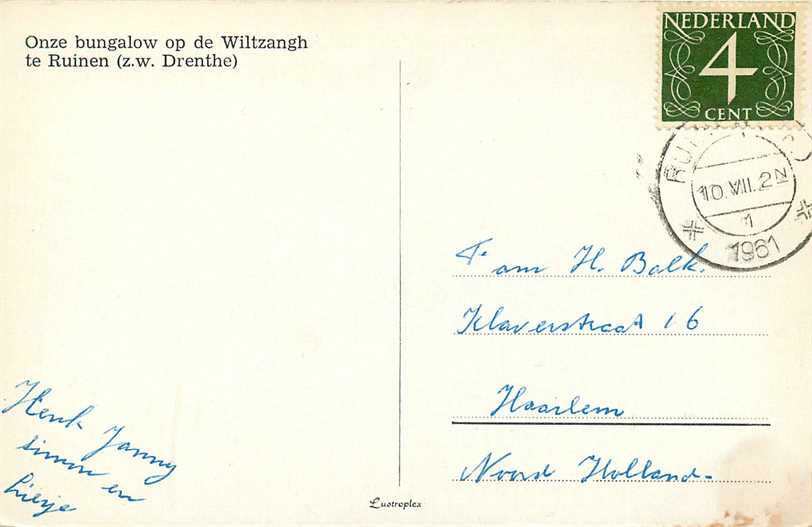 Onze bungalow op de Wiltzangh
te Ruinen (z.w. Drenthe)
NEDERLAND
4
CENT
10.VII.2N
1
1961
Fam H. Balk.
Klaverstraat 16
Haarlem
Noord Holland-
Henk Janny
simon en
Liesje
Luotroplex